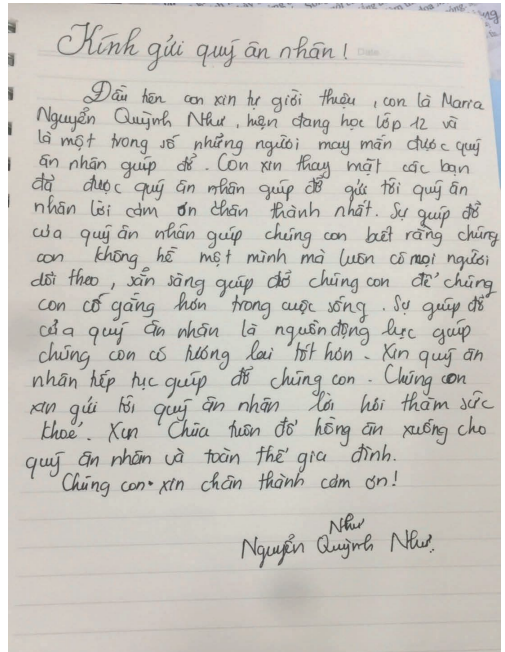 Kính gửi quý ân nhân!
Đầu tên con xin tự giới thiệu, con là Maria
Nguyễn Quỳnh Như, hiện đang học lớp 12 và
là một trong số những người may mắn được quý
ân nhân giúp đỡ. Con xin thay mặt các bạn
đã được quý ân nhân giúp đỡ gửi tới quý ân
nhân lời cảm ơn chân thành nhất. Sự giúp đỡ
của quý ân nhân giúp chúng con biết rằng chúng
con không hề một mình mà luôn có mọi người
dõi theo, sẵn sàng giúp đỡ chúng con để chúng
con cố gắng hơn trong cuộc sống. Sự giúp đỡ
của quý ân nhân là nguồn động lực giúp
chúng con có tương lai tốt hơn. Xin quý ân
nhân tiếp tục giúp đỡ chúng con. Chúng con
xin gửi tới quý ân nhân lời hỏi thăm sức
khoẻ. Xin Chúa tuôn đổ hồng ân xuống cho
quý ân nhân và toàn thể gia đình.
Chúng con xin chân thành cảm ơn!
Như
Nguyễn Quỳnh Như.